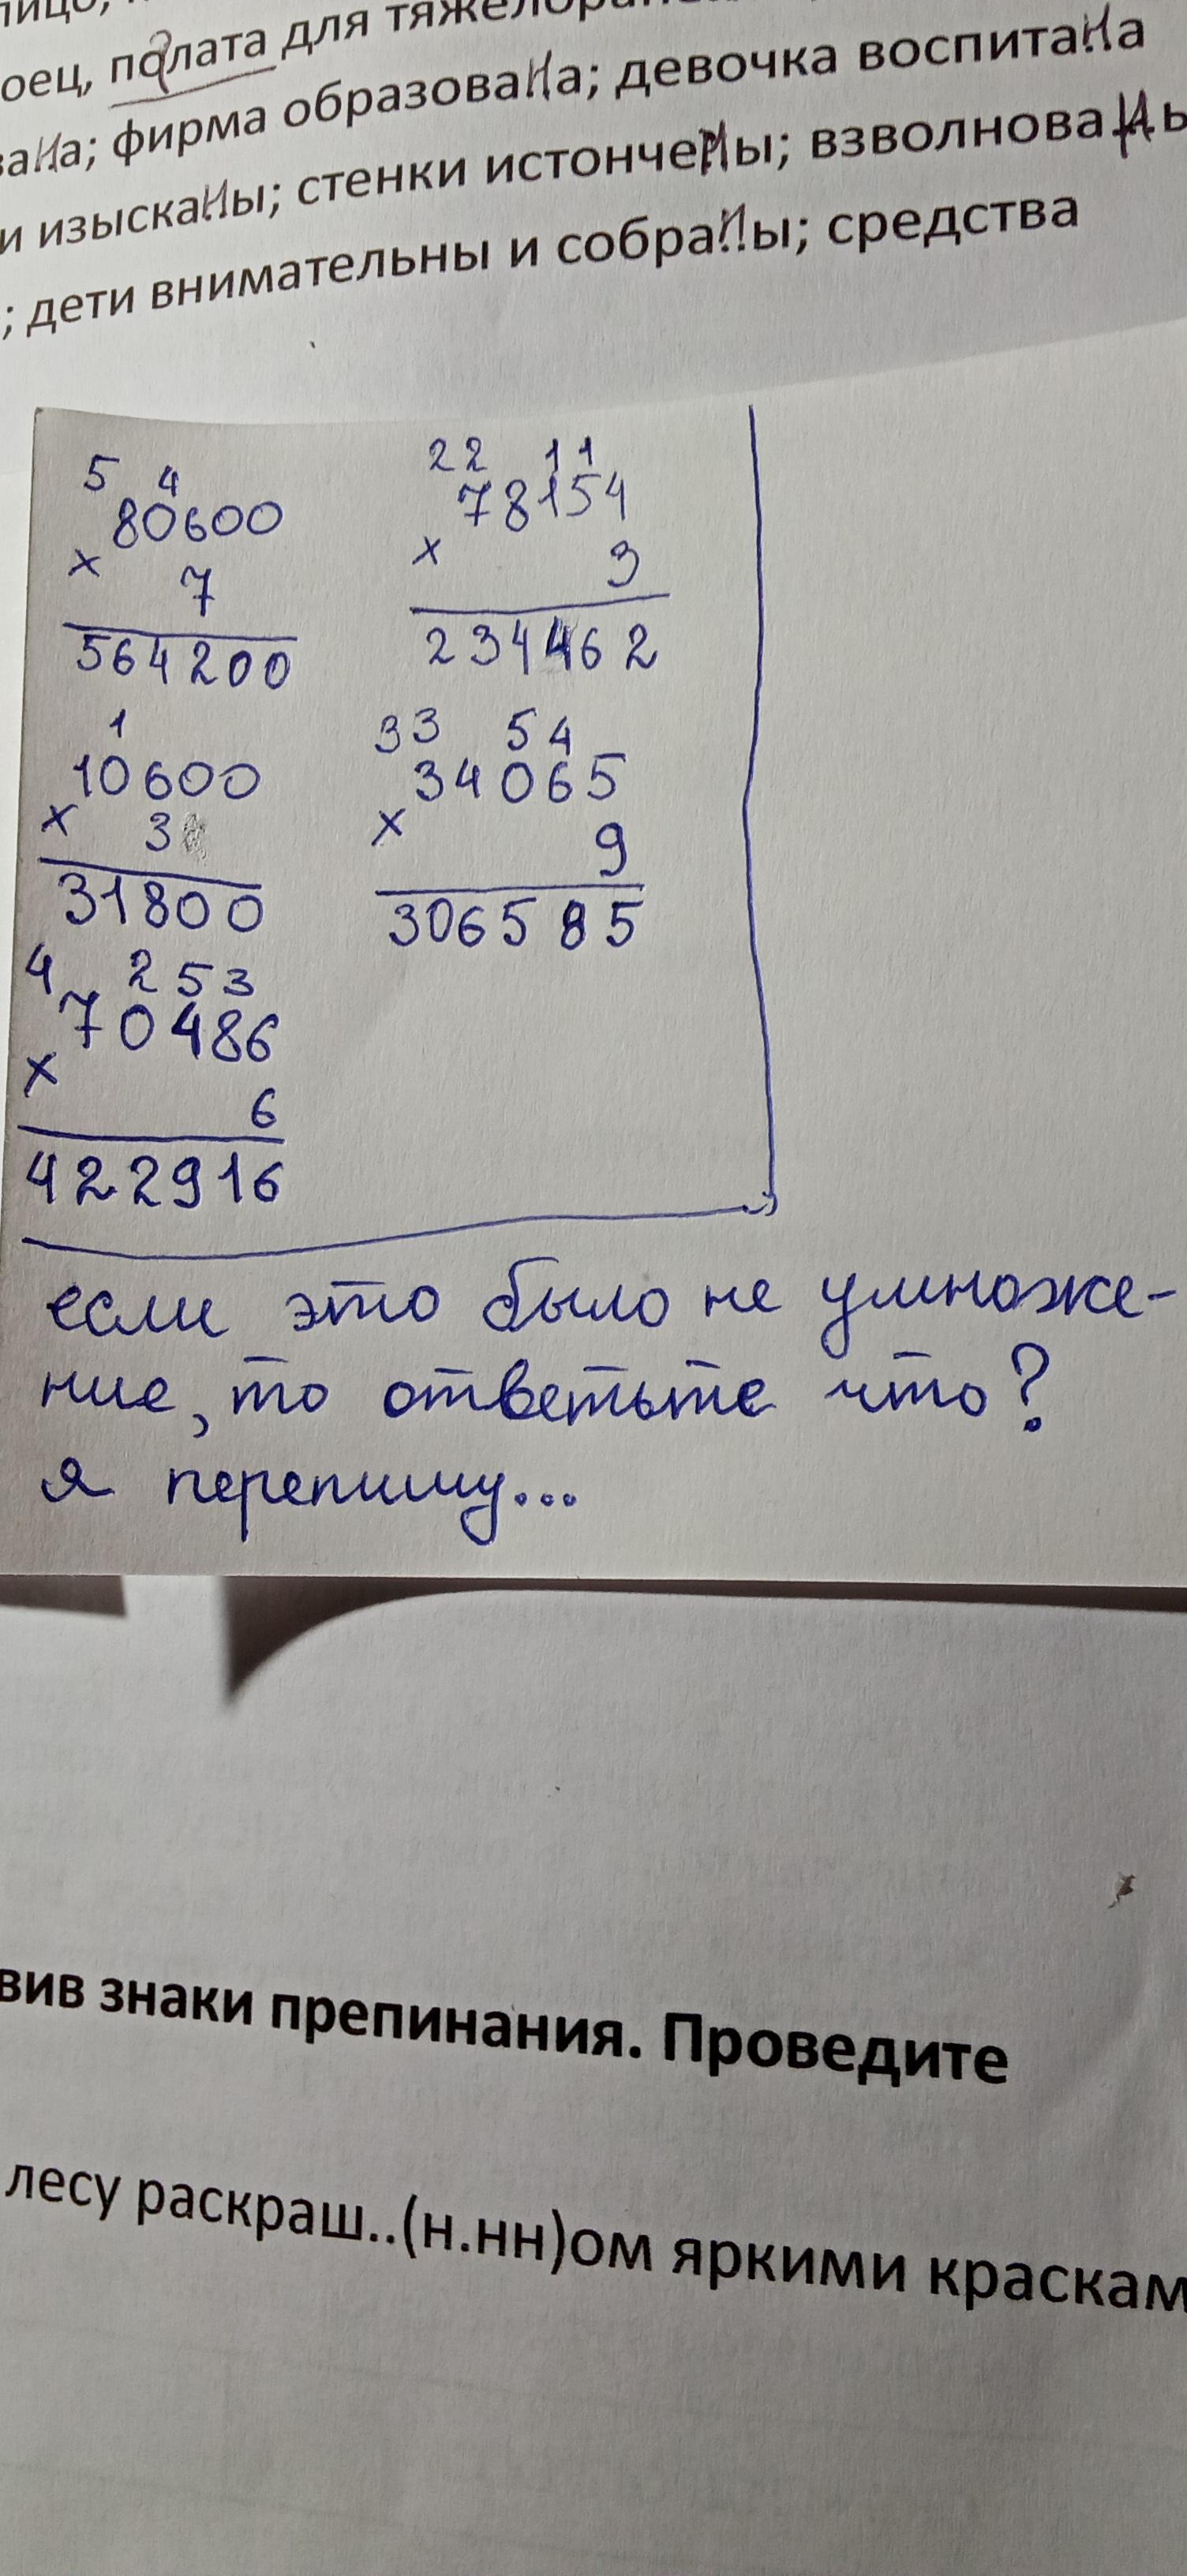 оец, полата для
фирма образована; девочка воспитана
и изысканы; стенки истончены; взволнованы
; дети внимательны и собраны; средства
5 4
80600
× 7
564200
22 11
78154
× 3
234462
1
10600
× 3
31800
33 54
34065
× 9
306585
4 253
70486
× 6
422916
если это было не умноже-
ние, то ответьте что?
я перепишу...
вив знаки препинания. Проведите
лесу раскраш..(н.нн)ом яркими краскам